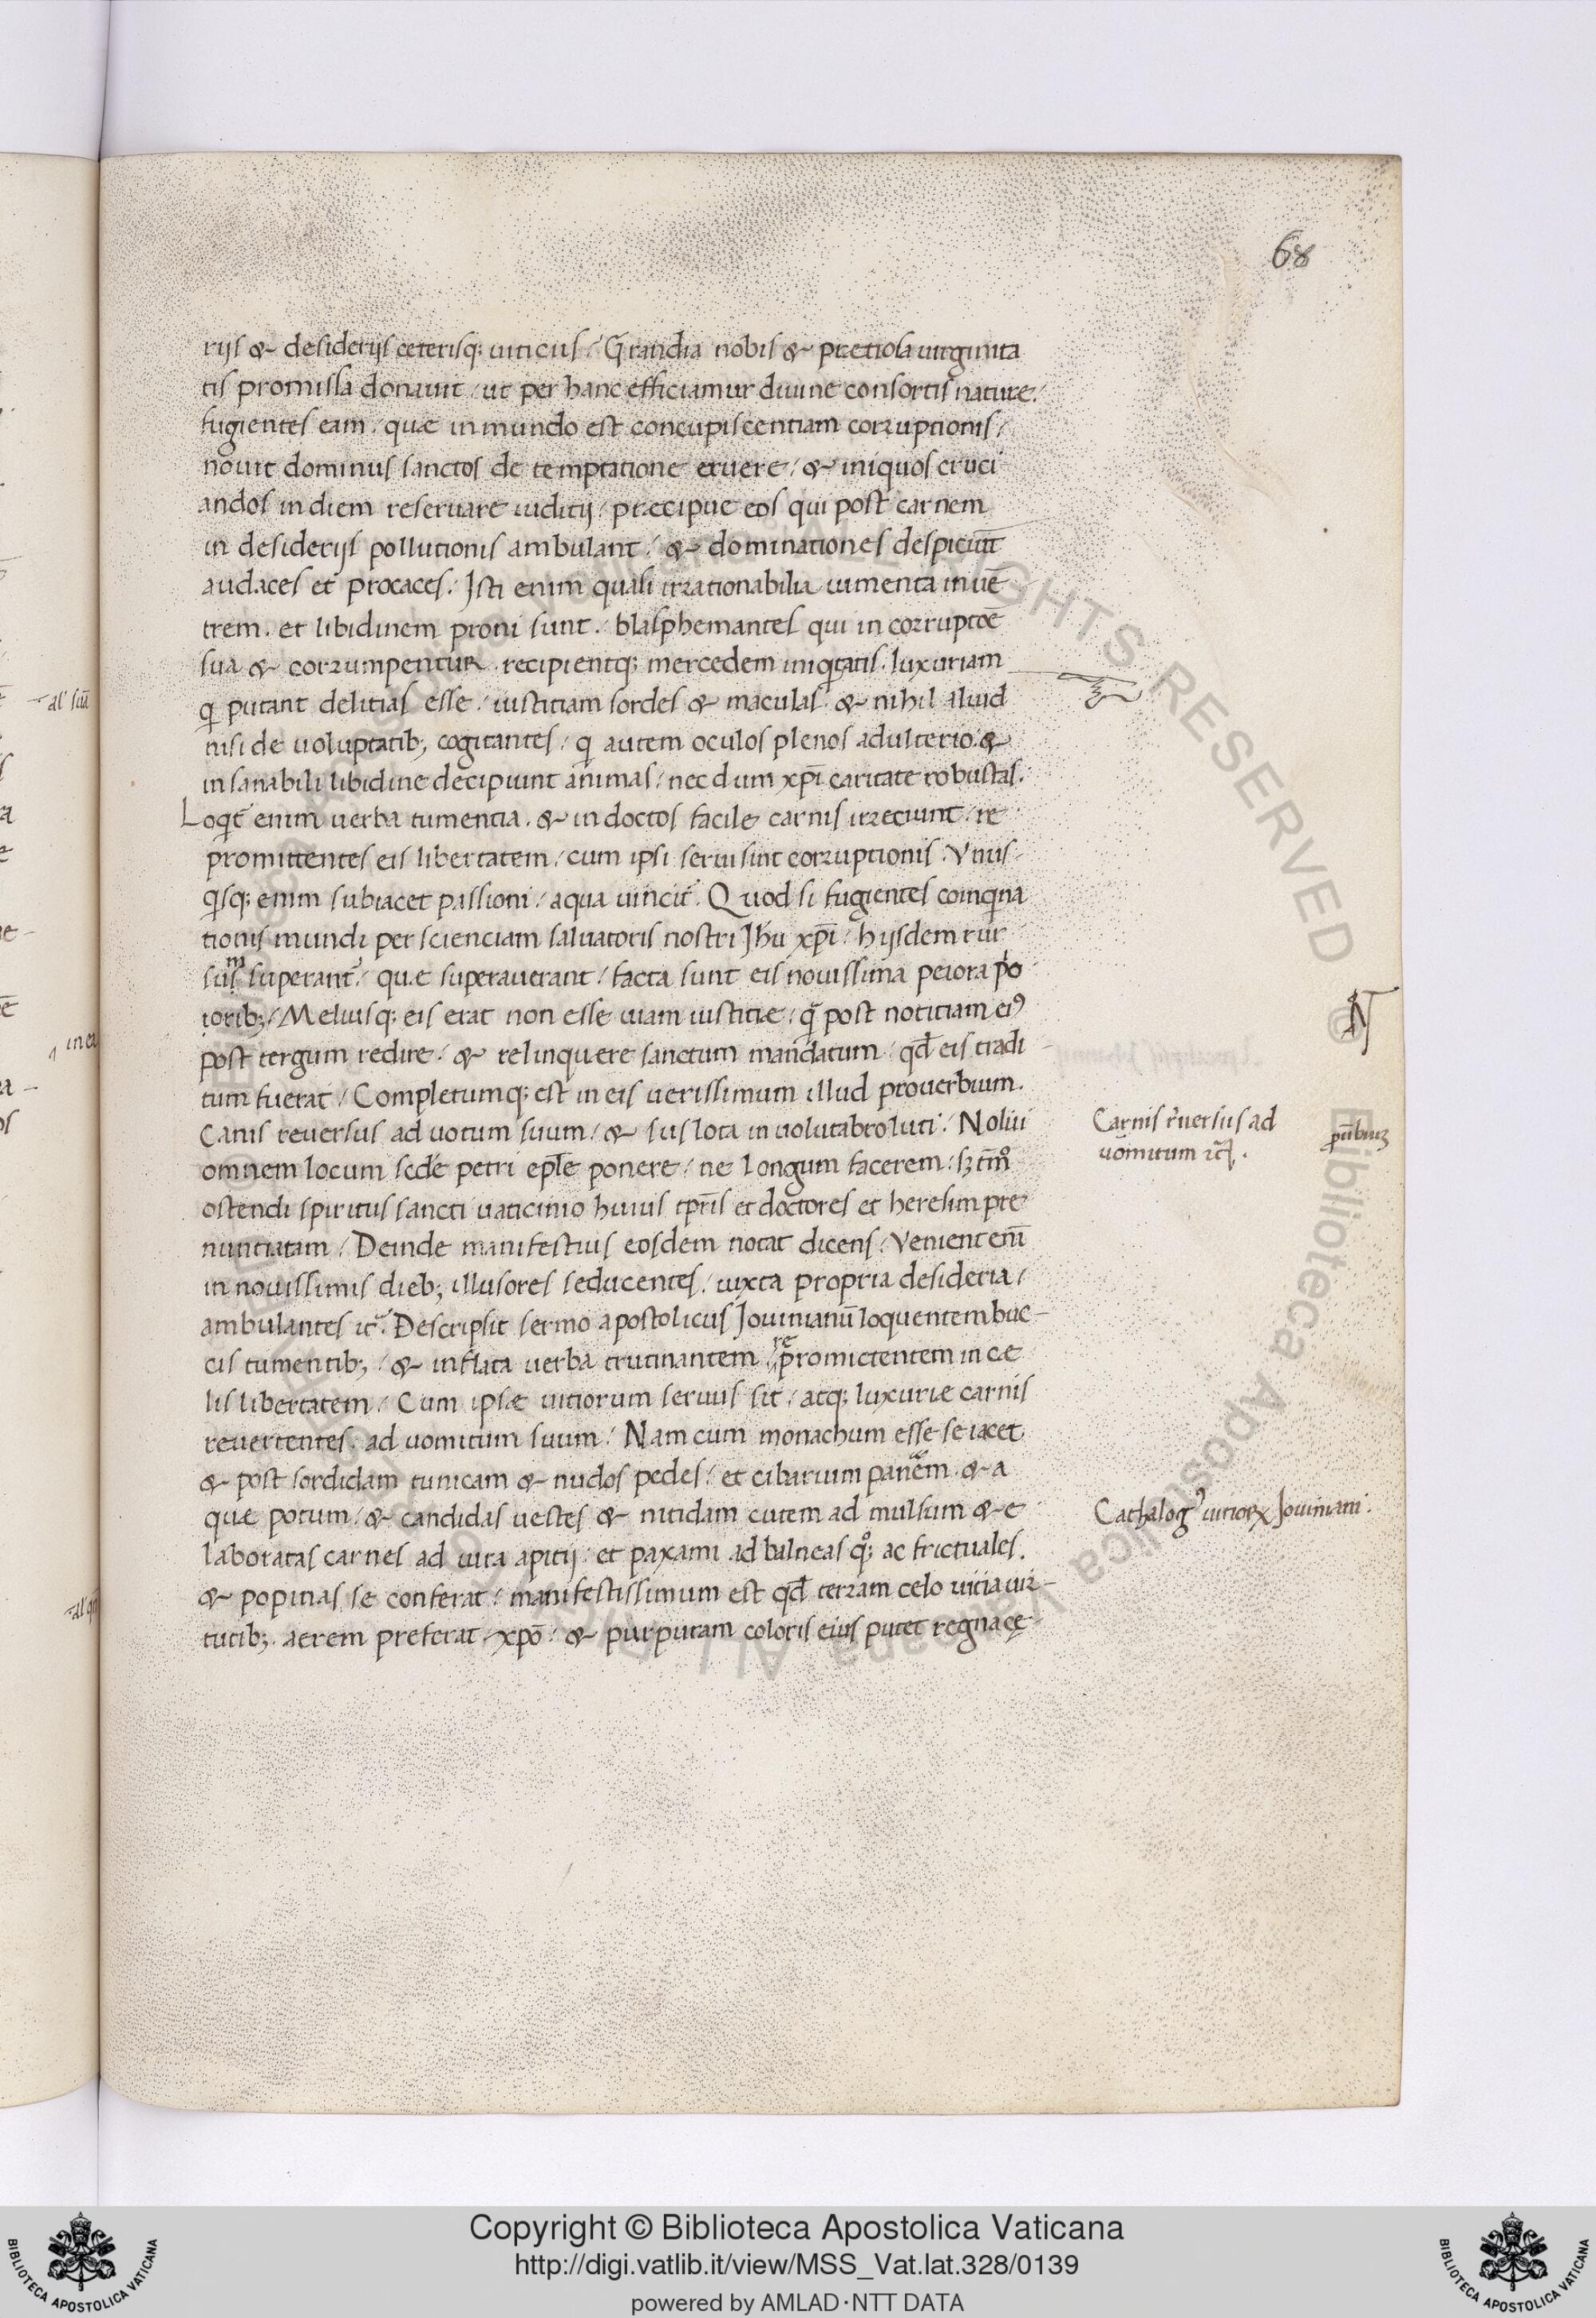 68
rijs & desiderijs ceterisq; uiticiis / Grandia nobis & pretiosa uirginita
tis promissa donauit / ut per hanc efficiamur diuine consortis nature.
fugientes eam / quae in mundo est concupiscentiam corruptionis /
nouit dominus sanctos de temptatione eruere / & iniquos cruci
andos in diem reseruare iuditij / praecipue eos qui post carnem
in desiderijs pollutionis ambulant / & dominationes despiciūt
audaces et procaces. Isti enim quasi irrationabilia iumenta in uē
trem. et libidinem proni sunt. blasphemantes qui in corruptōe
sua & corrumpentur. recipientq; mercedem iniqtatis. luxuriam
q putant delitias esse / iustitiam sordes & maculas & nihil aliud
nisi de uoluptatib; cogitantes / q autem oculos plenos adulterio. &
insanabili libidine decipiunt animas / nec dum xp̄i caritate robustas.
Loqt̄ enim uerba tumentia. & indoctos facile carnis irreciunt / re
promittentes eis libertatem / cum ipsi serui sint corruptionis. Vnus
qsq; enim subiacet passioni / aqua uincit̄. Quod si fugientes coinqna
tionis mundi per scienciam saluatoris nostri Jhū xp̄i / hijsdem rur
sum superant̄ / quae superauerant / facta sunt eis nouissima peiora p̄o
iorib; / Meliusq; eis erat non esse uiam iustitiae / q̄ post notitiam ei9
post tergum redire / & relinquere sanctum mandatum / qd̄ eis tradi
tum fuerat / Completumq; est in eis uerissimum illud prouerbium.
Canis reuersus ad uotum suum / & sus lota in uolutabro luti / Nolui
omnem locum scd̄e petri ep̄le ponere / ne longum facerem / sz tm̄o
ostendi spiritus sancti uaticinio huius tp̄ris et doctores et heresim pre
nuntiatam / Deinde manifestius eosdem notat dicens / Venient enī
in nouissimis dieb; illusores seducentes / iuxta propria desideria /
ambulantes itc̄. Descripsit sermo apostolicus Jouinianū loquentem buc
cis tumentib; / & inflata uerba trutinantem re promictentem in ce
lis libertatem / Cum ipsae uitiorum seruus sit / atq; luxuriae carnis
reuertentes. ad uomitum suum / Nam cum monachum esse se iacet
& post sordidam tunicam & nudos pedes / et cibarium panem & a
que potum / & candidas uestes & nitidam cutem ad mulsum & e
laboratas carnes ad iura apitij / et paxami ad balneas qo; ac frictuales.
& popinas se conferat / manifestissimum est qd̄ terram celo uicia uir
tutib; aerem preferat xpō / & purpuram coloris eius putet regna cę
Carnis r̄uersus ad
uomitum itc̄.
Cathalog9 uitiorꝝ Jouiniani.
Copyright © Biblioteca Apostolica Vaticana
http://digi.vatlib.it/view/MSS_Vat.lat.328/0139
powered by AMLAD·NTT DATA
BIBLIOTECA APOSTOLICA VATICANA
BIBLIOTECA APOSTOLICA VATICANA